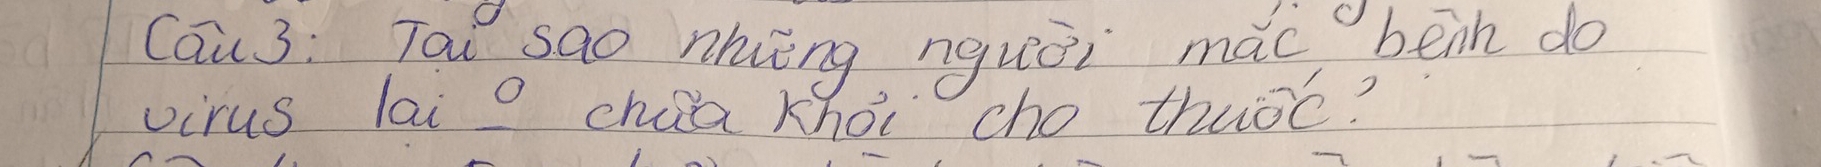 Câu 3: Tại sao những người mắc bệnh do
virus lại 0 chữa khỏi cho thuốc?